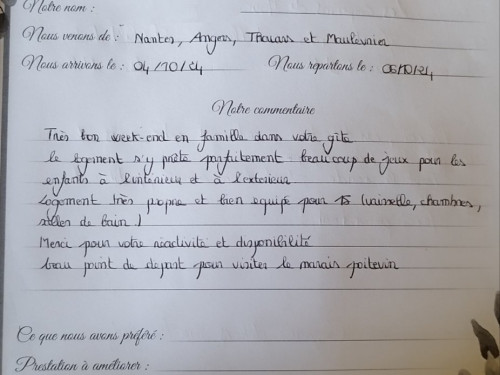 Notre nom :
Nous venons de : Nantes, Angers, Thouars et Maulévrier
Nous arrivons le : 04/10/24 Nous repartons le : 06/10/24
Notre commentaire
Très bon week-end en famille dans votre gîte
le logement s'y prête parfaitement beaucoup de jeux pour les
enfants à l'intérieur et à l'extérieur
Logement très propre et bien équipé pour 15 (vaisselle, chambres,
salles de bain)
Merci pour votre réactivité et disponibilité
beau point de départ pour visiter le marais poitevin
Ce que nous avons préféré :
Prestation à améliorer :